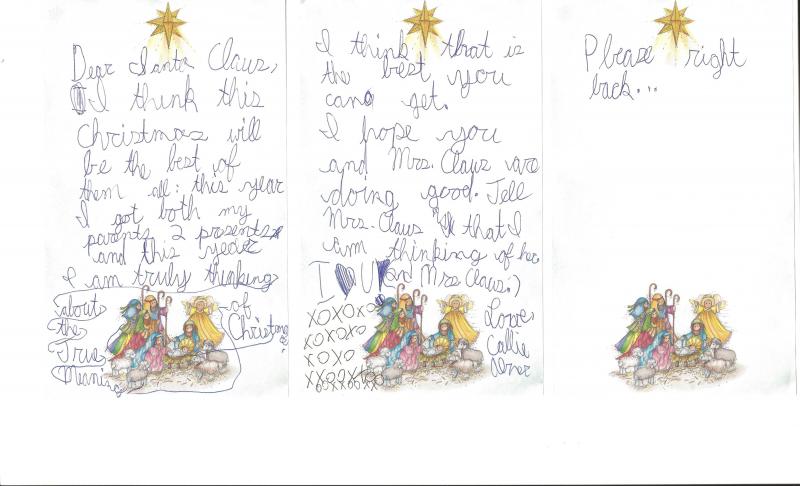 Dear Santa Claus,
I think this
Christmas will
be the best of
them all: this year
I got both my
parents 2 presents
and this year
I am truly thinking
about
the
True
Meaning
of
Christmas!
I think that is
the best you
can get.
I hope you
and Mrs. Claus are
doing good. Tell
Mrs. Claus that I
am thinking of her
and Mrs. Claus:)
I U!
xoxoxo
xoxoxo
xoxo
Love,
Callie
Please right
back...